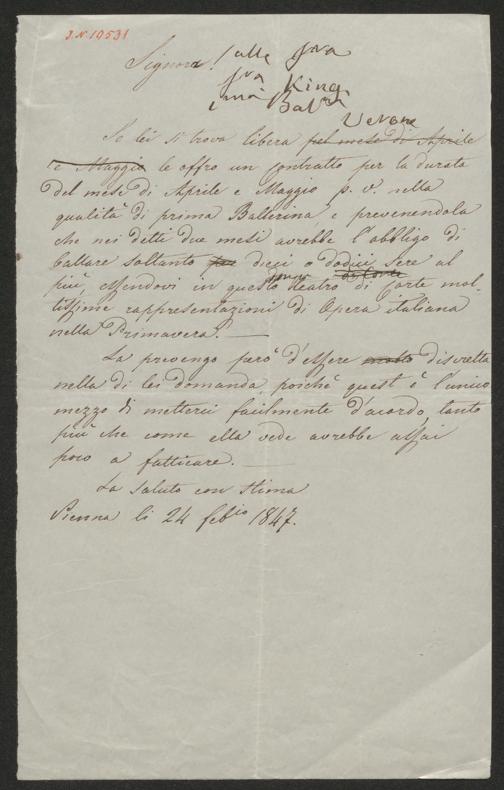 J.N. 10531
Signora! alla Sra
Sra King
ima Balna
Verona
Se lei si trova libera pel mese di Aprile
e Maggio le offro un contratto per la durata
del mese di Aprile e Maggio p. v. nella
qualità di prima Ballerina e prevenendola
che nei detti due mesi avrebbe l'obbligo di
ballare soltanto per dieci o dodici sere al
più, essendovi in questo teatro di Corte mol-
tissime rappresentazioni di Opera italiana
nella Primavera. —
La prevengo però d'essere molto discretta
nella di lei domanda poiché quest'è l'unico
mezzo di metterci facilmente d'acordo, tanto
più che come ella vede avrebbe assai
poco a fatticare. —
La saluto con stima
Vienna li 24 febio 1847.